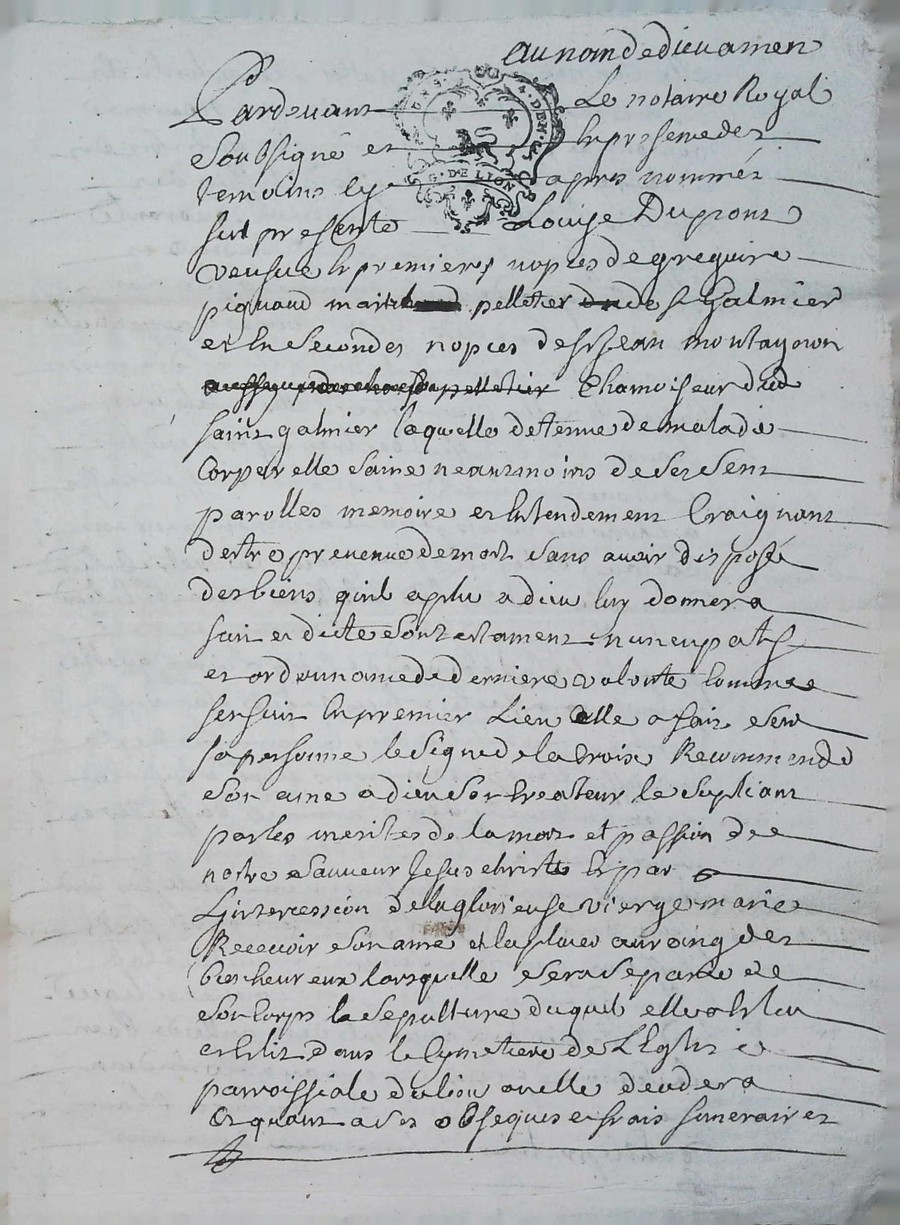 au nom de dieu amen
Pardevant Le notaire Royal
soubsigné et en presence des
temoins cy apres nommés
fut presente Louise Dupont
veusve en premieres nopces de greguoire
pignaud marchand pelletier de st Galmier
et en secondes nopces de sr Jean montagnon
pelletier Chamoiseur dud
saint galmier laquelle detenue de maladie
corporelle saine neautmoins de ses sens
parolles memoire et entendement Craignant
destre prevenue de mort sans avoir disposé
des biens quil a plu a dieu luy donner a
fait et dicté son testament nuncupatif
et ordonnance de derniere volonté comme
sensuit en premier Lieu elle a fait sur
sa personne le signe de la croix Recommendé
son ame a dieu son createur le supliant
par les merites de la mort et passion de
nostre sauveur Jesus christ et par
L'intercession de la glorieuse vierge marie
Recevoir son ame et la placer au rang des
bienheureux lorsquelle sera separée de
son corps la sepulture duquel elle
eslit dans le cymetiere de L'Eglise
parroissiale du lieu ou elle decedera
Et quant a ses obseques et frais funeraires
G. DE LION